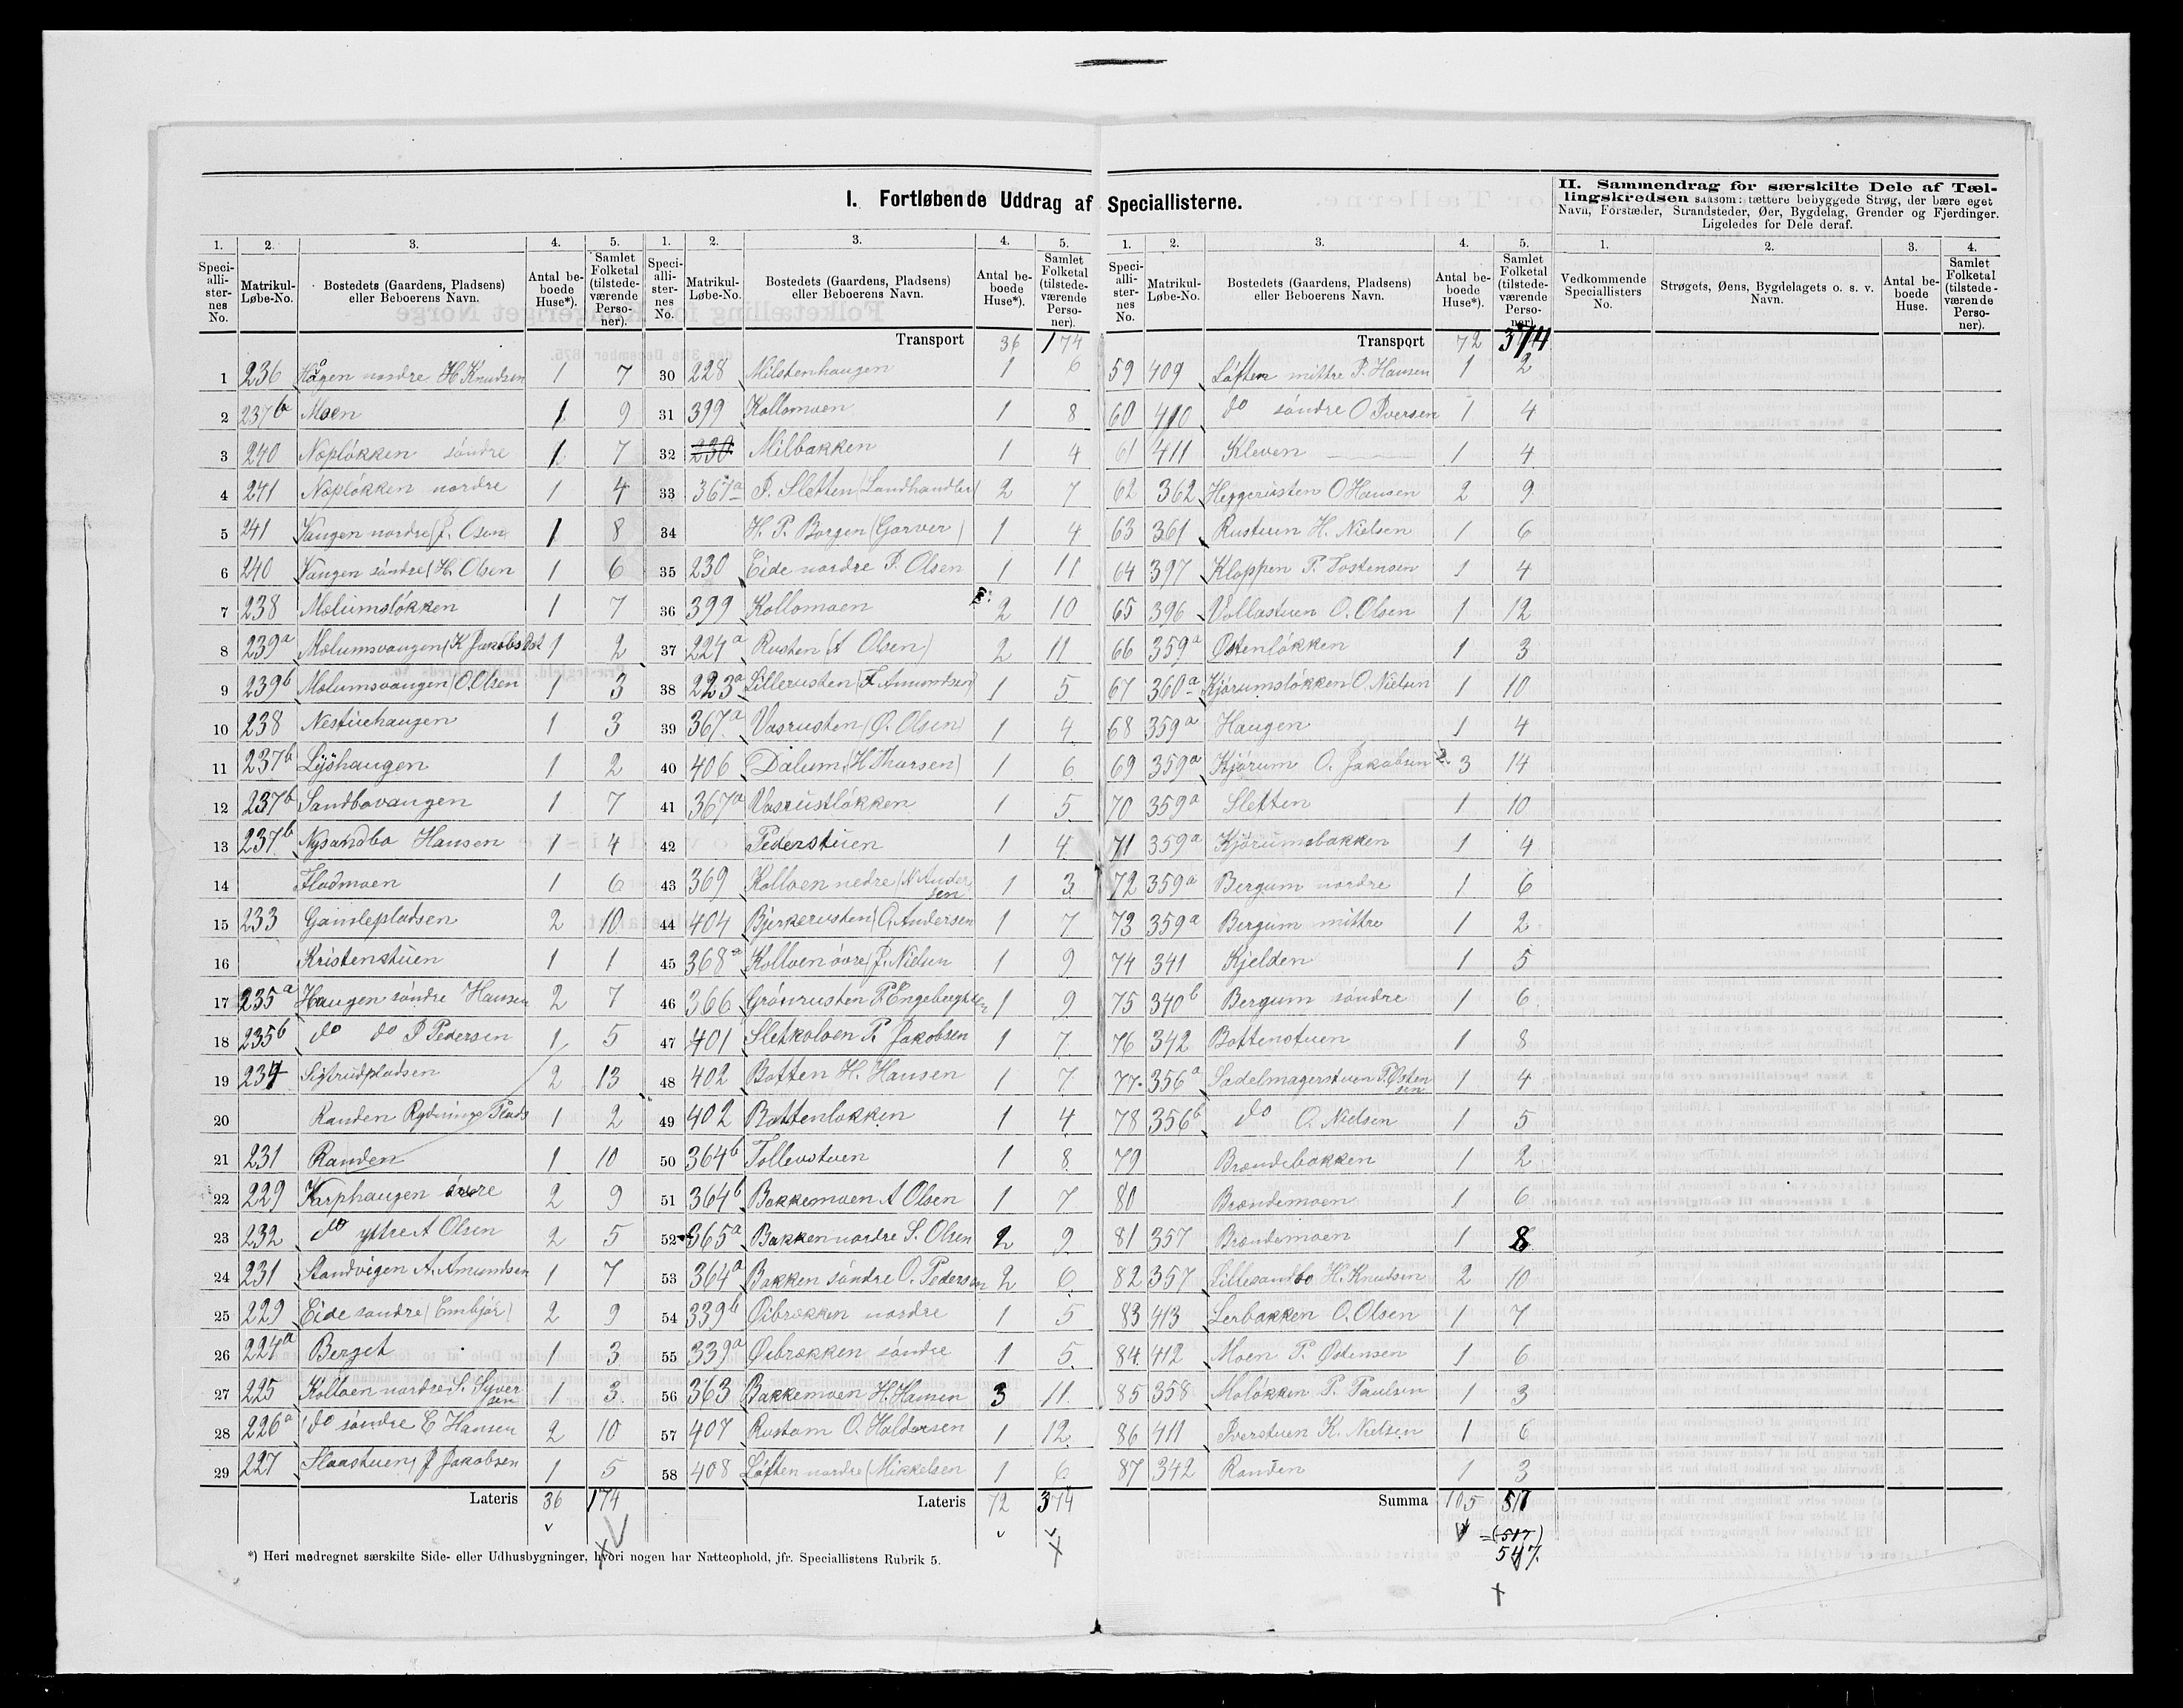 I. Fortløbende Uddrag af Speciallisterne.
II. Sammendrag for særskilte Dele af Tæl-
lingskredsen saasom: tættere bebyggede Strøg, der bære eget
Navn, Forstæder, Strandsteder, Øer, Bygdelag, Grender og Fjerdinger.
Ligeledes for Dele deraf.
1. 2. 3. 4. 5.
Speci-alli-ster-nes No. Matrikul-Løbe-No. Bostedets (Gaardens, Pladsens) eller Beboerens Navn. Antal be-boede Huse*). Samlet Folketal (tilstede-værende Perso-ner).
1 236 Hågen nordre H. Knudsen 1 7
2 237b Moen 1 9
3 240 Nopløkken søndre 1 7
4 241 Nopløkken nordre 1 4
5 241 Vangen nordre (J. Olsen 1 8
6 240 Vangen søndre (H. Olsen 1 6
7 238 Molumsløkken 1 7
8 239a Molumsvangen (K Jakobsdat 1 2
9 239b Molumsvangen (O. Olsen 1 3
10 238 Nestuehaugen 1 3
11 237b Lyshaugen 1 2
12 237b Sandbovangen 1 7
13 237b Nysandbo Hansen 1 4
14 Fladmoen 1 6
15 233 Gamlepladsen 2 10
16 Kristenstuen 1 1
17 235a Haugen søndre Hansen 2 7
18 235b do do P Pedersen 1 5
19 234 Sigtrudpladsen 2 13
20 Randen Rydnings Plads 1 2
21 231 Randen 1 10
22 229 Karphaugen øvre 2 9
23 232 do yttre A Olsen 2 5
24 231 Standvigen A. Amundsen 1 7
25 229 Eide søndre (Embjør) 2 9
26 224a Berget 1 3
27 225 Kolloen nordre S. Syversen 1 3
28 226a do søndre E Hansen 2 10
29 227 Slaastuen J Jakobsen 1 5
Lateris 36 174
1. 2. 3. 4. 5.
Speci-alli-ster-nes No. Matrikul-Løbe-No. Bostedets (Gaardens, Pladsens) eller Beboerens Navn. Antal be-boede Huse*). Samlet Folketal (tilstede-værende Perso-ner).
Transport 36 174
30 228 Milstenhaugen 1 6
31 399 Kollomoen 1 8
32 230 Milbakken 1 4
33 367a P. Sletten (Landhandler) 2 7
34 H. P. Borgen (Garver) 1 4
35 230 Eide nordre P. Olsen 1 11
36 399 Kollomoen 2 10
37 224a Rusten (A Olsen) 2 11
38 223a Lillerusten (F Amundsen) 1 5
39 367a Vasrusten (O. Olsen) 1 4
40 406 Dalum (H Thorsen) 1 6
41 367a Vasrustløkken 1 5
42 Pederstuen 1 4
43 369 Kolloen nedre (N Andersen 1 3
44 404 Bjerkerusten (O. Andersen 1 7
45 368a Kolloen øvre (J. Nielsen 1 9
46 366 Grønrusten P. Engebregtsen 1 9
47 401 Sletkoloen P. Jakobsen 1 7
48 402 Botten H. Hansen 1 7
49 402 Bottenløkken 1 4
50 364b Tollevstuen 1 8
51 364b Bakkemoen A Olsen 1 7
52 365a Bakken nordre S. Olsen 2 9
53 364a Bakken søndre O. Pedersen 2 6
54 339b Øibrækken nordre 1 5
55 339a Øibrækken søndre 1 5
56 363 Bakkemoen H. Hansen 3 11
57 407 Rustom O. Haldorsen 1 12
58 408 Løften nordre (Mikkelsen 1 6
Lateris 72 374
1. 2. 3. 4. 5.
Speci-alli-ster-nes No. Matrikul-Løbe-No. Bostedets (Gaardens, Pladsens) eller Beboerens Navn. Antal be-boede Huse*). Samlet Folketal (tilstede-værende Perso-ner).
Transport 72 374
59 409 Løften mittre P. Hansen 1 2
60 410 do søndre O Iversen 1 4
61 411 Kleven 1 4
62 362 Heggerusten O Hansen 2 9
63 361 Rustuen H. Nielsen 1 6
64 397 Kloppen P. Tostensen 1 4
65 396 Vollastuen O. Olsen 1 12
66 359a Østenløkken 1 3
67 360a Kjørumsløkken O. Nielsen 1 10
68 359a Haugen 1 4
69 359a Kjørum O. Jakobsen 2. 3 14
70 359a Sletten 1 10
71 359a Kjørumsbakken 1 4
72 359a Bergum nordre 1 6
73 359a Bergum mittre 1 2
74 341 Kjelden 1 5
75 340b Bergum søndre 1 6
76 342 Bottenstuen 1 8
77 356a Sadelmagerstuen P. Østensen 1 4
78 356b do O. Nielsen 1 5
79 Brændebakken 1 2
80 Brændemoen 1 6
81 357 Brændemoen 1 8
82 357 Lillesandbo H. Knudsen 2 10
83 413 Lerbakken O. Olsen 1 7
84 412 Moen P. Østensen 1 6
85 358 Moløkken P. Paulsen 1 3
86 411 Iverstuen K. Nielsen 1 6
87 342 Randen 1 3
Summa 105 517
(517)
547.
1. 2. 3. 4.
Vedkommende Speciallisters No. Strøgets, Øens, Bygdelagets o. s. v. Navn. Antal be-boede Huse. Samlet Folketal (tilstede-værende Perso-ner).
*) Heri medregnet særskilte Side- eller Udhusbygninger, hvori nogen har Natteophold, jfr. Speciallistens Rubrik 5.